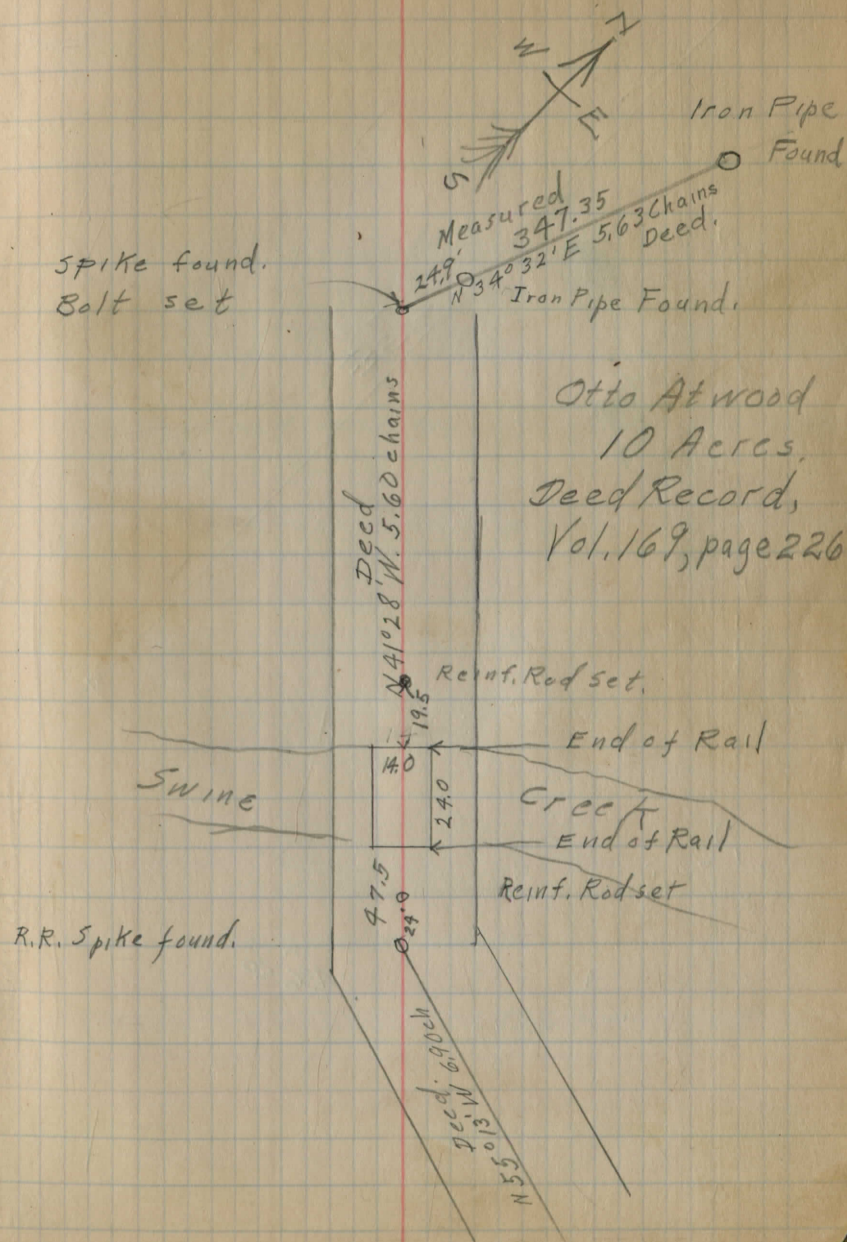 N
W
E
S
Iron Pipe
Found
Measured
347.35
5.63 Chains
Deed.
24.9'
N 34° 32' E
Iron Pipe Found.
Spike found.
Bolt set
Otto Atwood
10 Acres.
Deed Record,
Vol. 169, page 226
Deed
N 41° 28' W. 5.60 chains
Reinf. Rod set.
19.5
End of Rail
14.0
24.0
Swine
Creek
End of Rail
Reinf. Rod set
47.5
24.0
R.R. Spike found.
Deed.
N 55° 13' W 6.90 ch